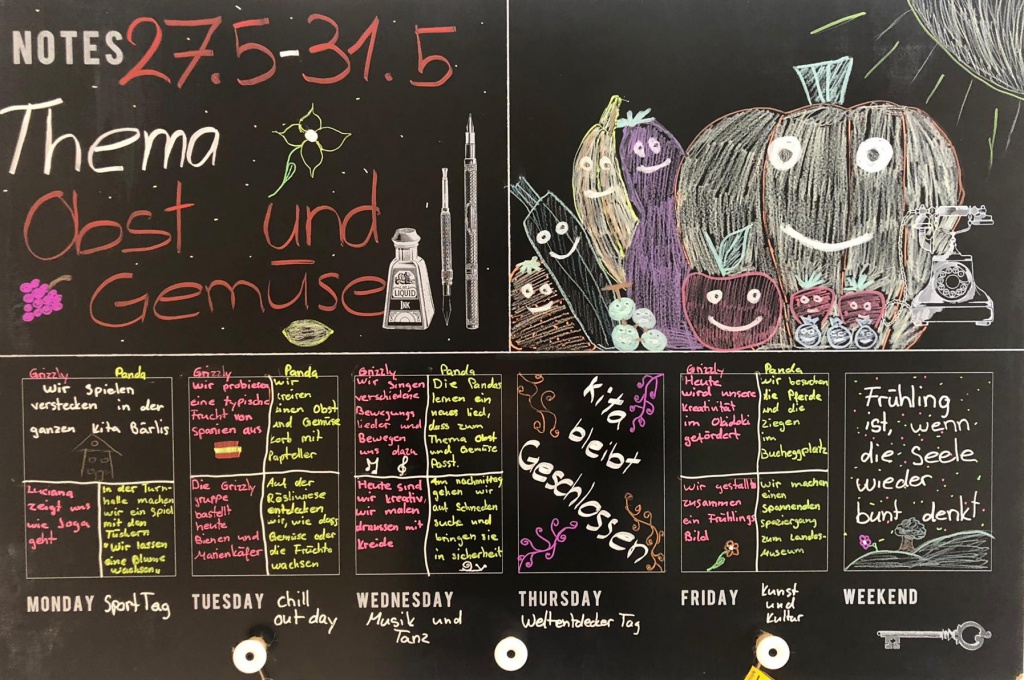 NOTES 27.5-31.5
Thema
Obst und
Gemüse
LIQUID
INK
Grizzly Panda
Wir spielen
verstecken in der
ganzen Kita Bärlis
Luciana
zeigt uns
wie Joga
geht
In der Turn-
halle machen
wir ein Spiel
mit den
Tüchern
"Wir lassen
eine Blume
wachsen"
MONDAY Sport Tag
Grizzly
Wir probieren
eine typische
Frucht von
spanien aus
Panda
Wir
kreiren
einen Obst
und Gemüse
korb mit
Papteller
Die Grizzly
gruppe
bastellt
heute
Bienen und
Marienkäfer
Auf der
Rösliwiese
entdecken
wir, wie dass
Gemüse oder
die Früchte
wachsen
TUESDAY chill
out day
Grizzly
Wir singen
verschiedene
Bewegungs
lieder und
Bewegen
uns dazu
Panda
Die Pandas
lernen ein
neues lied,
dass zum
Thema Obst
und Gemüse
Passt.
Heute sind
wir kreativ,
wir malen
draussen mit
kreide
Am nachmittag
gehen wir
auf Schnecken
suche und
bringen sie
in sicherheit
WEDNESDAY
Musik und
Tanz
Kita
bleibt
Geschlossen
THURSDAY
Weltentdecker Tag
Grizzly
Heute
wird unsere
Kreativität
im Okidoki
gefördert
Panda
Wir besuchen
die Pferde
und die
ziegen
im
Bucheggplatz
Wir gestallt
zusammen
ein Frühlings
Bild
Wir machen
einen
spannenden
spaziergang
zum Landes-
Museum
FRIDAY Kunst
und
Kultur
Frühling
ist, wenn
die Seele
wieder
bunt denkt
WEEKEND